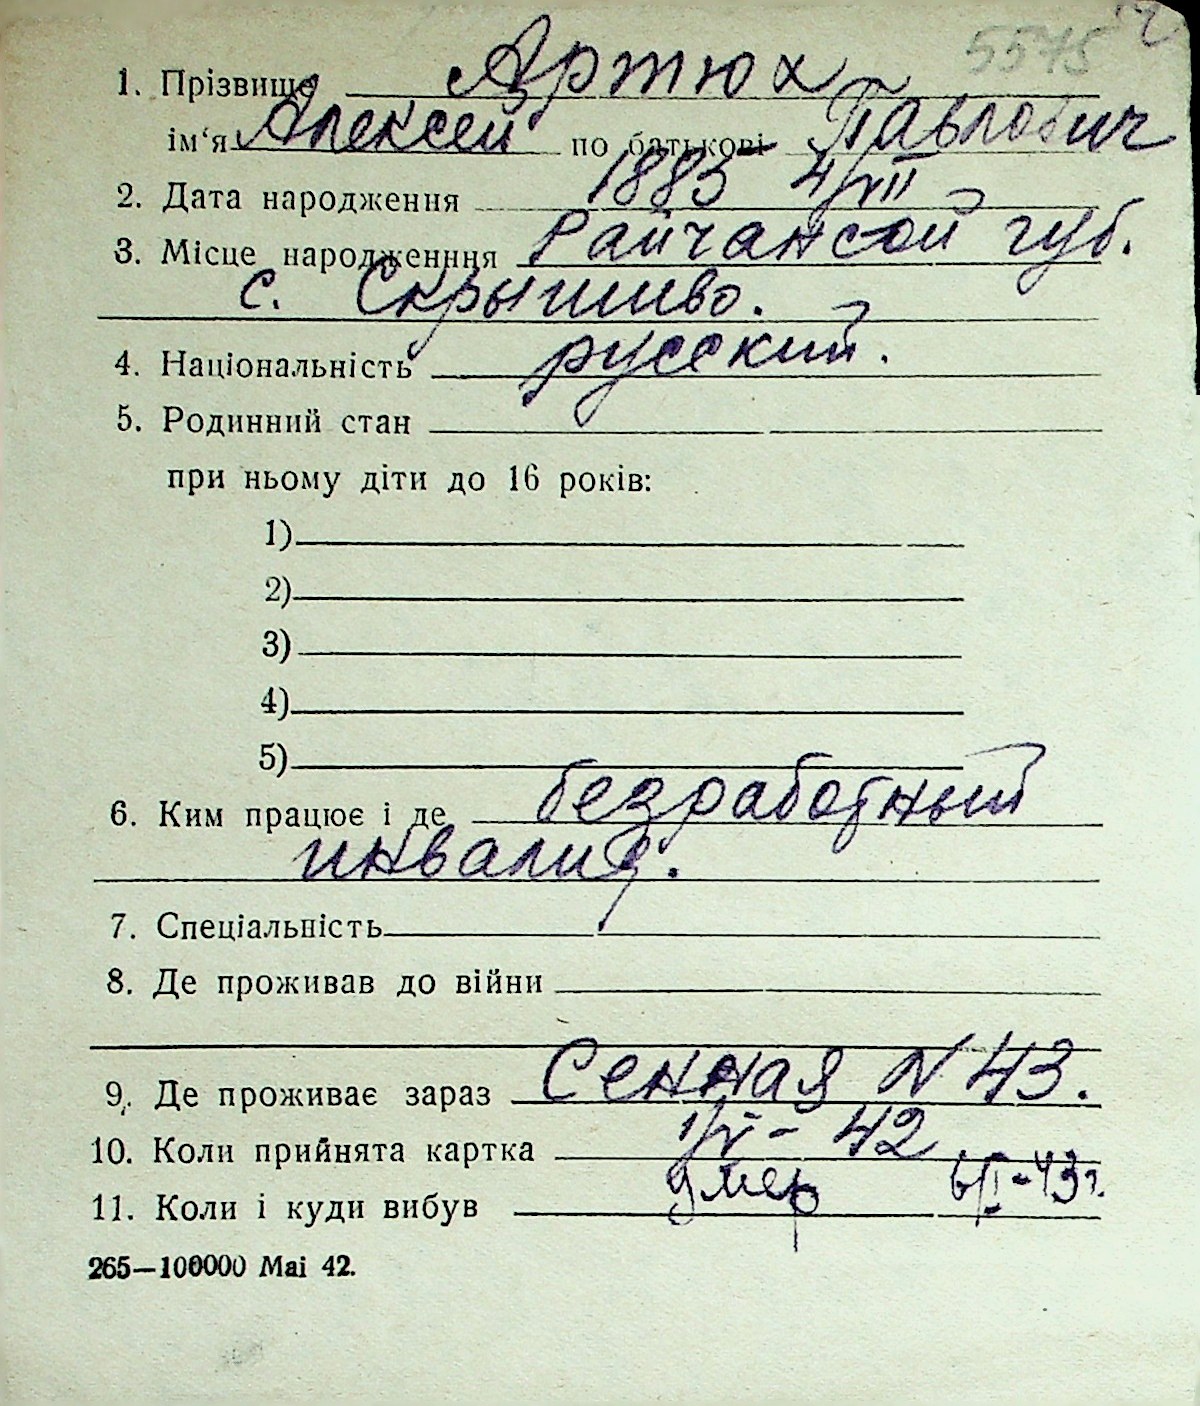 5575
1. Прізвище Артюх
ім'я Алексей по батькові Павлович
2. Дата народження 1883 4/VII
3. Місце народженння Райчансой губ.
с. Скрышиво.
4. Національність русский.
5. Родинний стан
при ньому діти до 16 років:
1)
2)
3)
4)
5)
6. Ким працює і де безработный
инвалид.
7. Спеціальність
8. Де проживав до війни
9. Де проживає зараз Сенная N 43.
10. Коли прийнята картка 1/V - 42
11. Коли і куди вибув умер 6/I-43г.
265—100000 Mai 42.